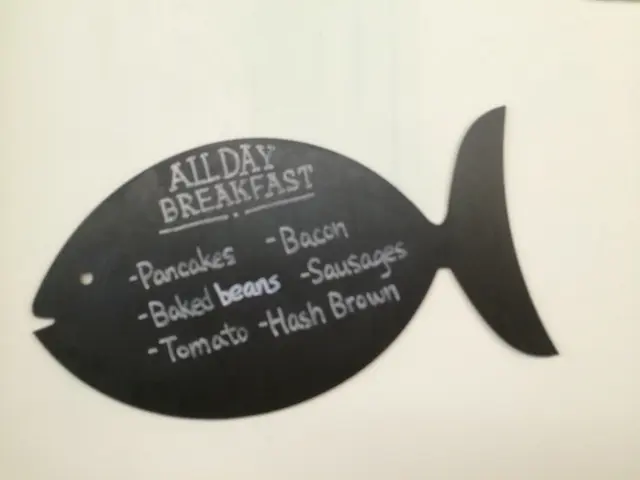 ALL DAY
BREAKFAST
-Pancakes -Bacon
-Baked beans -Sausages
-Tomato -Hash Brown